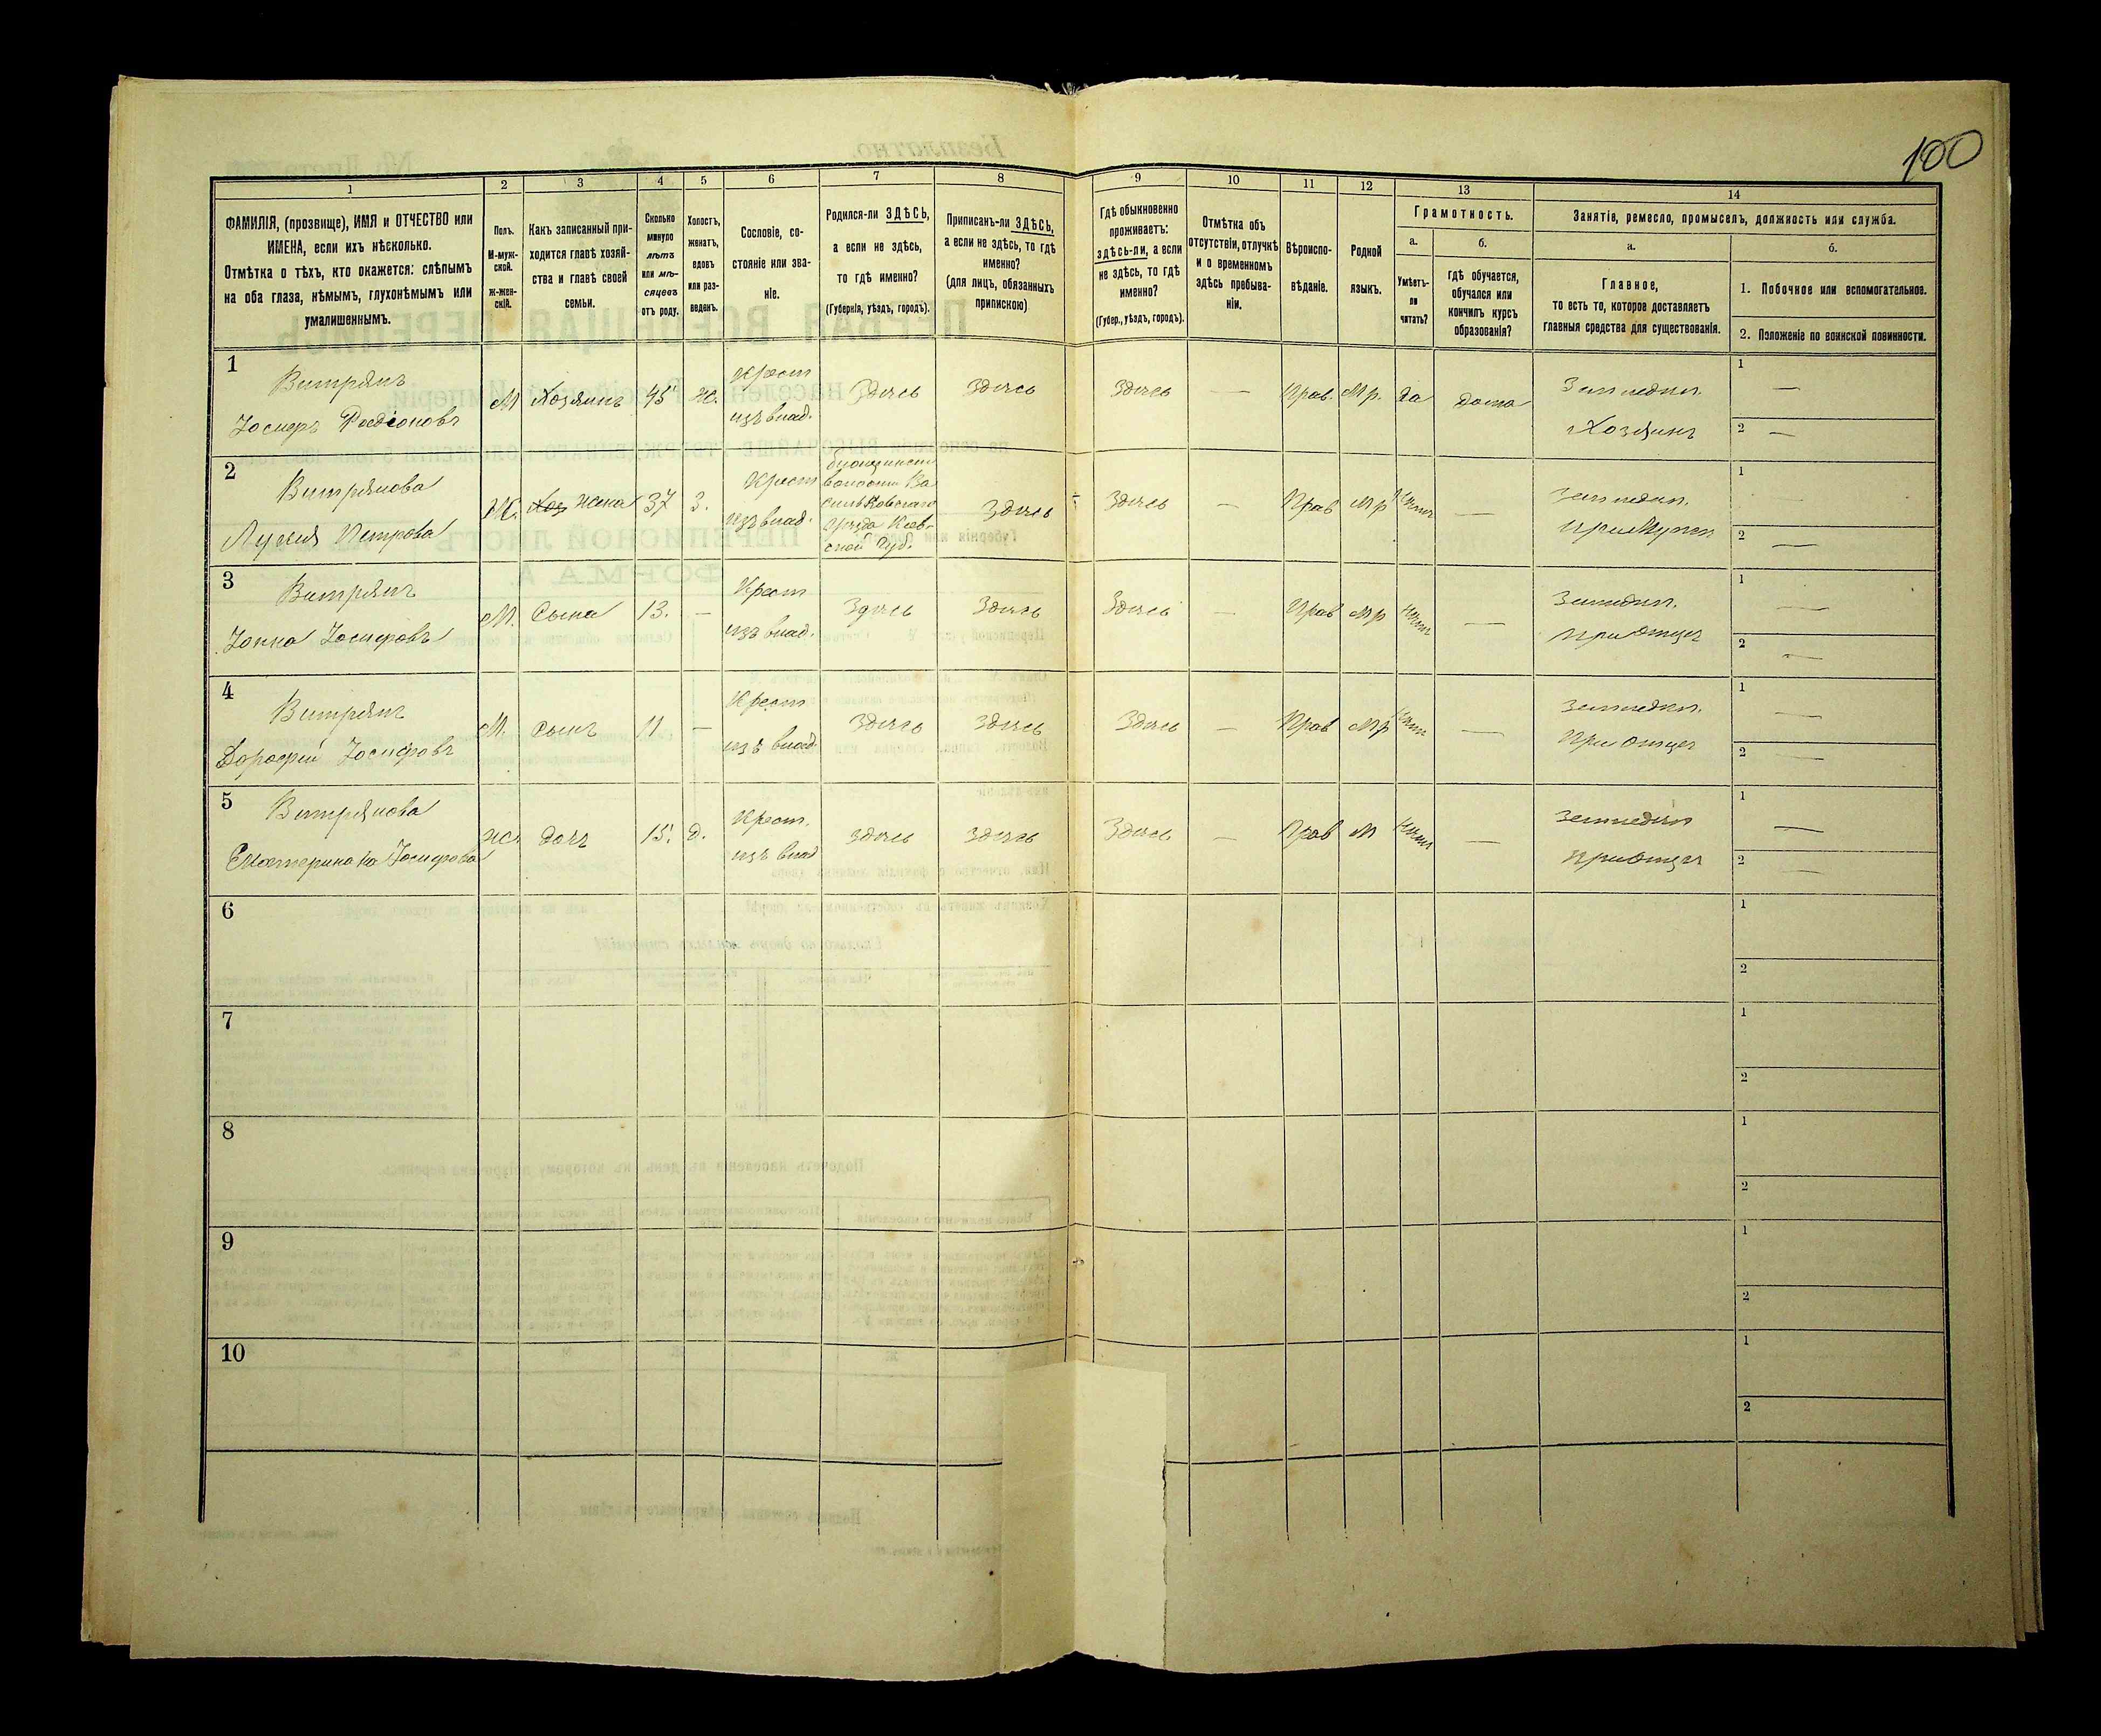 100
1 2 3 4 5 6 7 8 9 10 11 12 13 14
ФАМИЛІЯ, (прозвище), ИМЯ и ОТЧЕСТВО или
ИМЕНА, если ихъ нѣсколько.
Отмѣтка о тѣхъ, кто окажется: слѣпымъ
на оба глаза, нѣмымъ, глухонѣмымъ или
умалишеннымъ.
Полъ.
М-муж-
ской.
Ж-жен-
скій.
Какъ записанный при-
ходится главѣ хозяй-
ства и главѣ своей
семьи.
Сколько
минуло
лѣтъ
или мѣ-
сяцевъ
отъ роду.
Холостъ,
женатъ,
вдовъ
или раз-
веденъ.
Сословіе, со-
стояніе или зва-
ніе.
Родился-ли ЗДѢСЬ,
а если не здѣсь,
то гдѣ именно?
(Губернія, уѣздъ, городъ).
Приписанъ-ли ЗДѢСЬ,
а если не здѣсь, то гдѣ
именно?
(для лицъ, обязанныхъ
припискою)
Гдѣ обыкновенно
проживаетъ:
здѣсь-ли, а если
не здѣсь, то гдѣ
именно?
(Губер., уѣздъ, городъ).
Отмѣтка объ
отсутствіи, отлучкѣ
и о временномъ
здѣсь пребыва-
ніи.
Вѣроиспо-
вѣданіе.
Родной
языкъ.
Грамотность.
а.
Умѣетъ-
ли
читать?
б.
гдѣ обучается,
обучался или
кончилъ курсъ
образованія?
Занятіе, ремесло, промыселъ, должность или служба.
а.
Главное,
то есть то, которое доставляетъ
главныя средства для существованія.
б.
1. Побочное или вспомогательное.
2. Положеніе по воинской повинности.
1
Витрянъ
Іосифъ Родіоновъ
М Хозяинъ 45 Ж.
Крест
изъ влад.
Здѣсь Здѣсь Здѣсь — Прав. Мр. Да дома
Землед.
Хозяинъ
1 —
2 —
2
Витрянова
Лукія Петрова
Ж. Хоз жена 37 З.
Крест
изъ влад.
волости Ва
сильковскаго
уѣзда Кіев-
ской Губ.
Здѣсь Здѣсь — Прав Мр Нѣтъ —
Землед.
при Мужѣ
1 —
2 —
3
Витрянъ
Іосифовъ
М. Сынъ 13. —
Крест
изъ влад.
Здѣсь Здѣсь Здѣсь — Прав Мр Нѣтъ —
Землед.
при Отцѣ
1 —
2 —
4
Витрянъ
Дорофей Іосифовъ
М. сынъ 11 —
Крест
изъ влад.
Здѣсь Здѣсь Здѣсь — Прав Мр Нѣтъ —
Землед.
при Отцѣ
1 —
2 —
5
Витрянова
Іосифова
Ж. дочь 15. Д.
Крест.
изъ влад
здѣсь здѣсь Здѣсь — Прав М Нѣтъ —
Землед
при Отцѣ
1 —
2 —
6
1
2
7
1
2
8
1
2
9
1
2
10
1
2